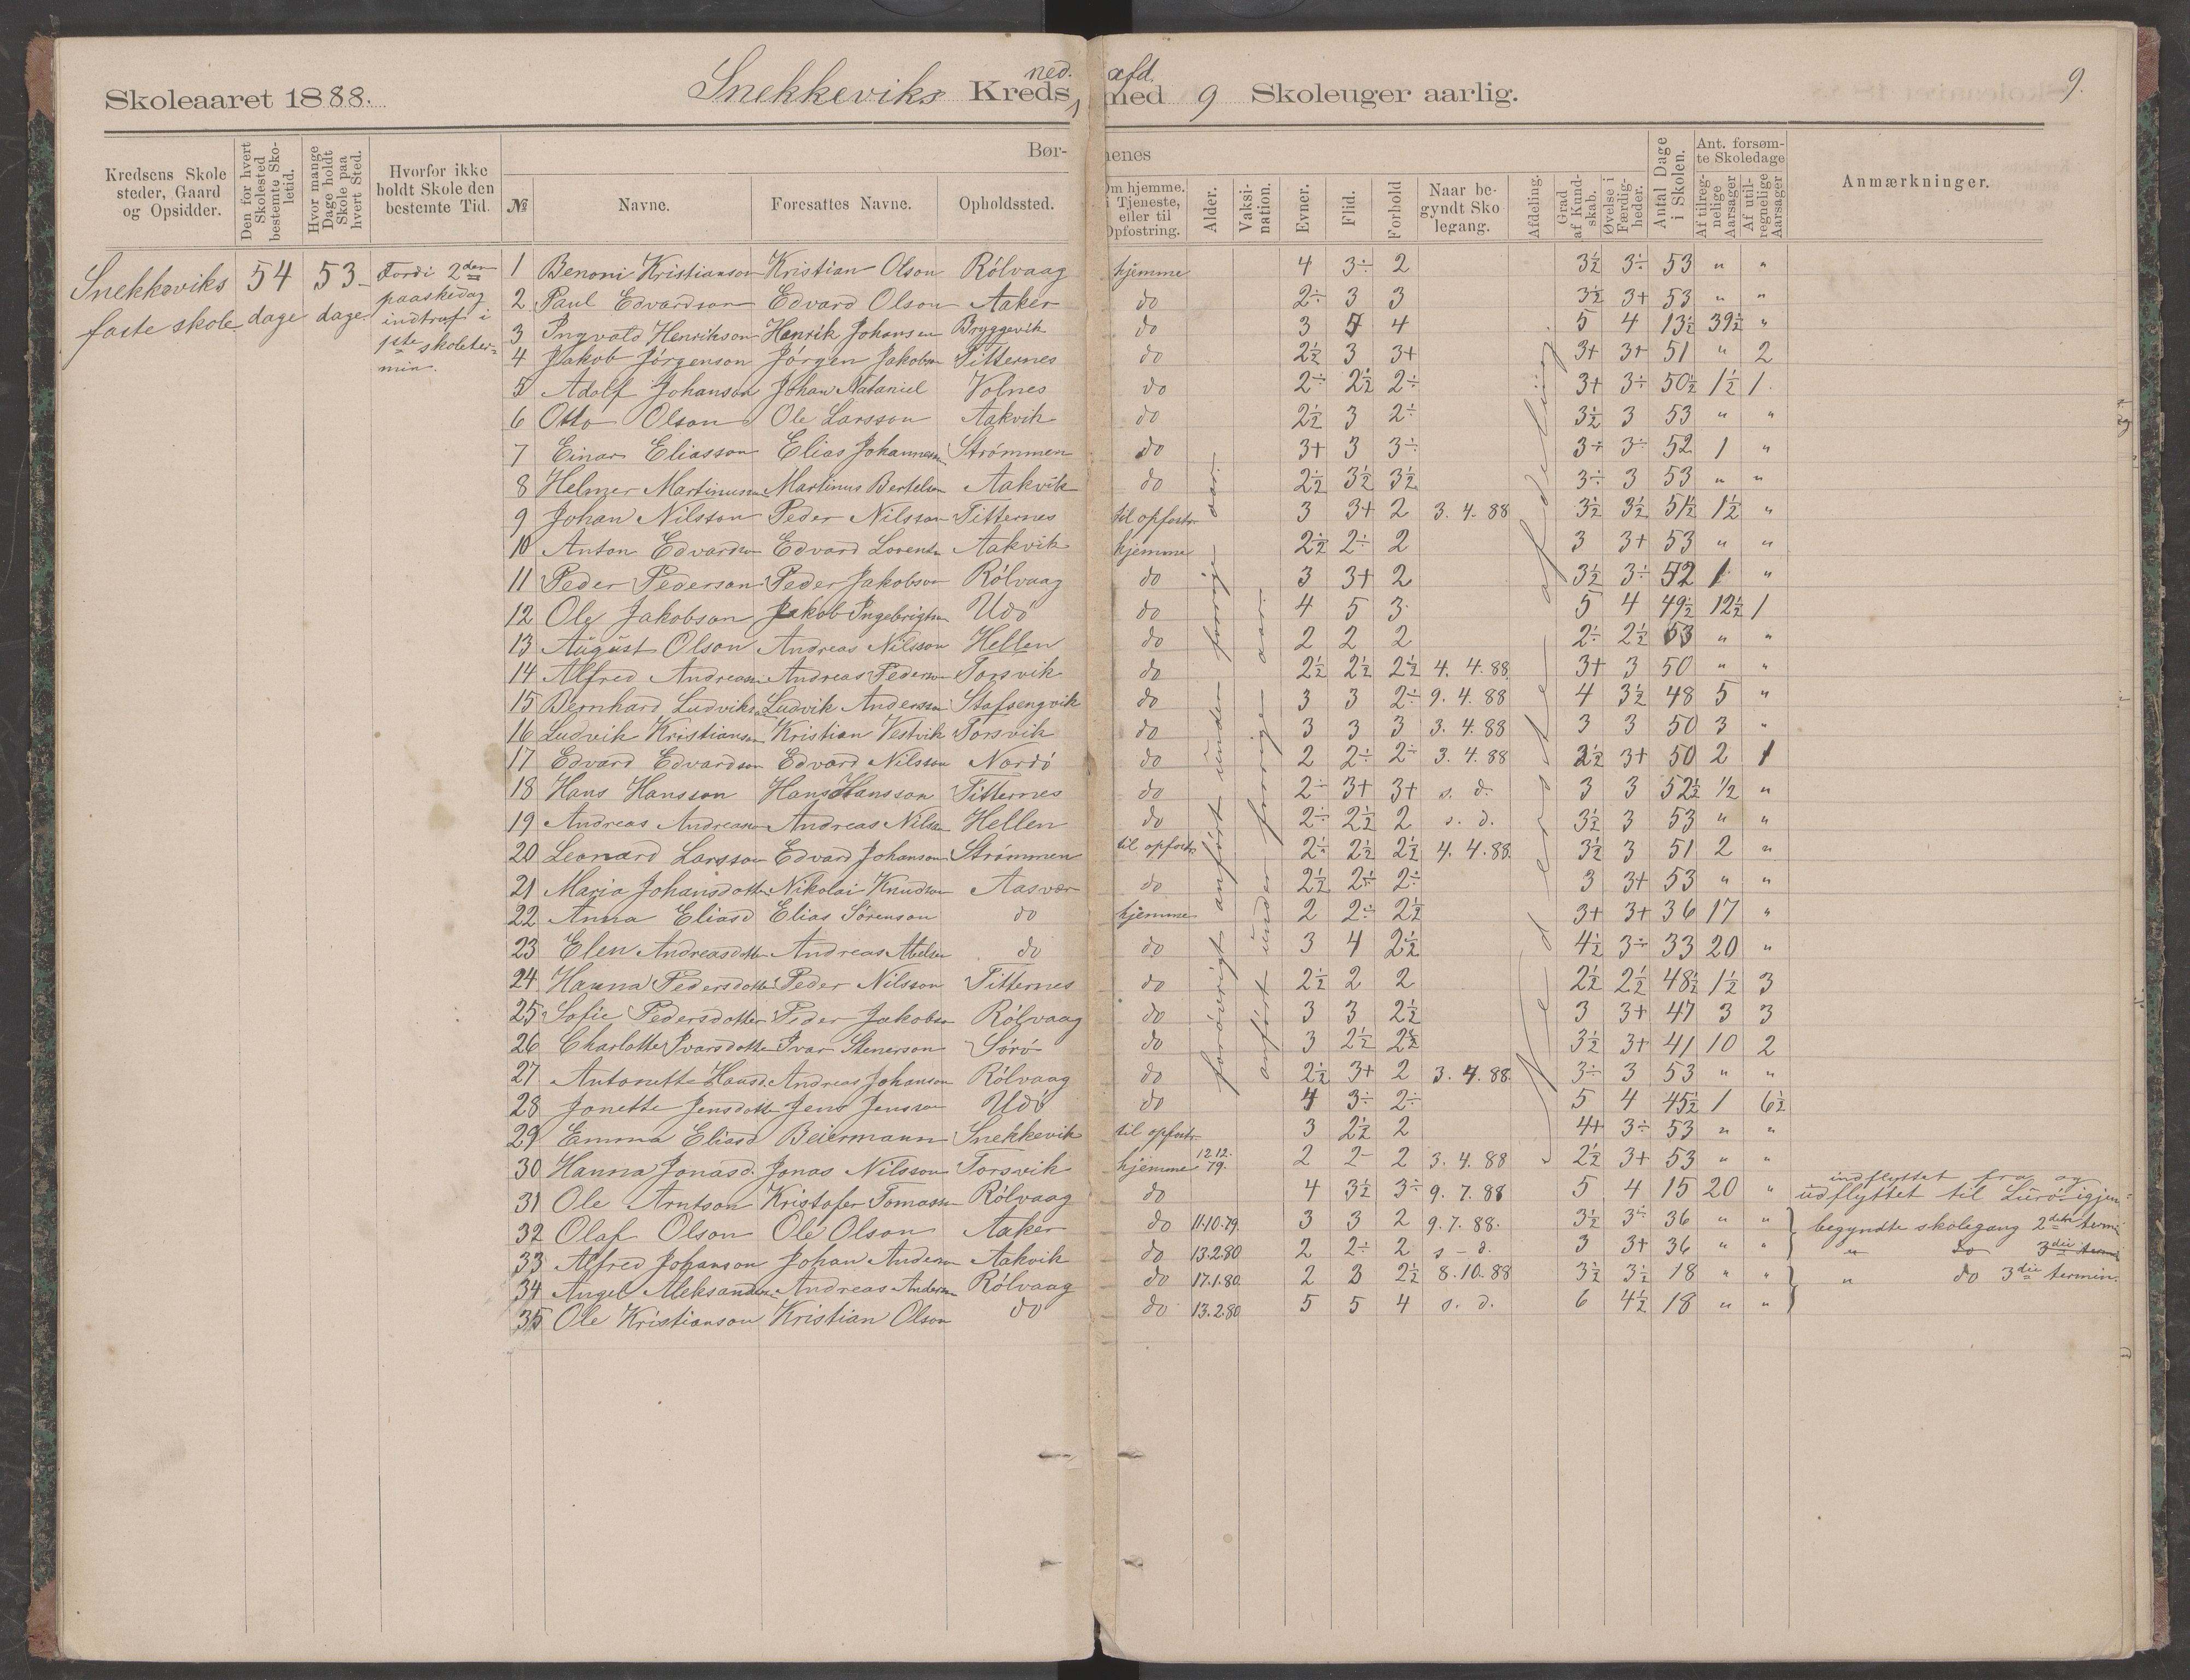 Skoleaaret 1888. Snekkeviks Kreds, ned. afd. med 9 Skoleuger aarlig. 9.
Kredsens Skolesteder, Gaard og Opsidder.
Den for hvert Skolested bestemte Skoletid.
Hvor mange Dage holdt Skole paa hvert Sted.
Hvorfor ikke holdt Skole den bestemte Tid.
Børnenes
№ Navne. Foresattes Navne. Opholdssted. Om hjemme. i Tjeneste, eller til Opfostring. Alder. Vaksination. Evner. Flid. Forhold Naar begyndt Skolegang. Afdeling. Grad af Kundskab. Øvelse i Færdigheder. Antal Dage i Skolen. Ant. forsømte Skoledage Af tilregnelige Aarsager Af utilregnelige Aarsager Anmærkninger.
Snekkeviks faste skole. 54 dage 53 dage. Fordi 2den paaskedag indtraf i 1ste skoletermin.
1 Benoni Kristianson Kristian Olson Rólvaag hjemme 4 3÷ 2 3½ 3÷ 53 " "
2 Paul Edvardson Edvard Olson Aaker do 2÷ 3 3 3½ 3+ 53 " "
3 Ingvald Henrikson Henrik Johansen Bryggevik do 3 5 4 5 4 13½ 39½ "
4 Jakob Jórgenson Jórgen Jakobsn Titternes do 2½ 3 3+ 3+ 3+ 51 " 2
5 Adolf Johanson Johan Nataniel Volnes do 2÷ 2½ 2÷ 3+ 3÷ 50½ 1½ 1.
6 Otto Olson Ole Larsson Aakvik do 2½ 3 2÷ 3½ 3 53 " "
7 Einar Eliasson Elias Johannesn Strómmen do 3+ 3 3÷ 3÷ 3÷ 52 1 "
8 Helmer Martinusn Martinus Bertelsn Aakvik do 2½ 3½ 3½ 3÷ 3 53 " "
9 Johan Nilsson Peder Nilsson Titternes til opfostr. 3 3+ 2 3. 4. 88 3½ 3½ 51½ 1½ "
10 Anton Edvardsn Edvard Lorentsn Aakvik hjemme 2½ 2÷ 2 3 3+ 53 " "
11 Peder Pederson Peder Jakobson Rólvaag do 3 3+ 2 3½ 3÷ 52 1 "
12 Ole Jakobson Jakob Ingebrigtsn Udó do 4 5 3 5 4 49½ 12½ 1
13 August Olson Andreas Nilsson Hellen do 2 2 2 2÷ 2½ 53 " "
14 Alfred Andreasn Andreas Pedersn Torsvik do 2½ 2½ 2½ 4. 4. 88 3+ 3 50 " "
15 Bernhard Ludviksn Ludvik Andersson Stafsengvik do 3 3 2÷ 9. 4. 88 4 3½ 48 5 "
16 Ludvik Kristiansn Kristian Vestvik Torsvik do 3 3 3 3. 4. 88 3 3 50 3 "
17 Edvard Edvardson Edvard Nilsson Nordó do 2 2÷ 2÷ 3. 4. 88 3½ 3+ 50 2 1
18 Hans Hansson Hans Hansson Titternes do 2÷ 3+ 3+ s. d. 3 3 52½ ½ "
19 Andreas Andreasn Andreas Nilssn Hellen do 2÷ 2½ 2 s. d. 3½ 3 53 " "
20 Leonard Larsson Edvard Johanson Strómmen til opfostr. 2½ 2½ 2½ 4. 4. 88 3½ 3 51 2 "
21 Maria Johansdotter Nikolai Knudson Aasvær do 2½ 2÷ 2÷ 3 3+ 53 " "
22 Anna Eliasd Elias Sórenson do hjemme 2 2÷ 2½ 3+ 3+ 36 17 "
23 Elen Andreasdotter Andreas Abelsn do do 3 4 2½ 4½ 3÷ 33 20 "
24 Hanna Pedersdotter Peder Nilsson Titternes do 2½ 2 2 2½ 2½ 48½ 1½ 3
25 Sofie Pedersdotter Peder Jakobsn Rólvaag do 3 3 2½ 3 3+ 47 3 3
26 Charlotte Ivarsdotter Ivar Stenerson Sóró do 3 2½ 2½ 3½ 3+ 41 10 2
27 Antonette Hansd. Andreas Johanson Rólvaag do 2½ 3+ 2 3. 4. 88 3÷ 3 53 " "
28 Jonette Jensdotter Jens Jensson Udó do 4 3÷ 2÷ 5 4 45½ 1 6½
29 Emma Eliasd Beiermann Snekkevik til opfostr. 3 2½ 2 4+ 3÷ 53 " "
30 Hanna Jonasd. Jonas Nilsson Torsvik hjemme 12.12.79. 2 2÷ 2 3. 4. 88 2½ 3+ 53 " "
31 Ole Arntson Kristofer Tomassn Rólvaag do 4 3½ 3÷ 9. 7. 88 5 4 15 20 " indflyttet fra og udflyttet til Luró igjen.
32 Olaf Olson Ole Olson Aaker do 11.10.79. 3 3 2 9. 7. 88. 3½ 3÷ 36 " " } begyndte skolegang 2den termi
33 Alfred Johanson Johan Andersn Aakvik do 13.2.80 2 2÷ 2 s - d. 3 3+ 36 " " " do 3die termi
34 Angel Aleksandersn Andreas Andersn Rólvaag do 17.1.80 2 3 2½ 8. 10. 88 3½ 3½ 18 " " } " do 3die termin.
35 Ole Kristianson Kristian Olson do do 13.2.80 5 5 4 s. d. 6 4½ 18 " "
foróvrigt anfórt under forrige aar.
anfórt under forrige aar.
Nederste afdeling.